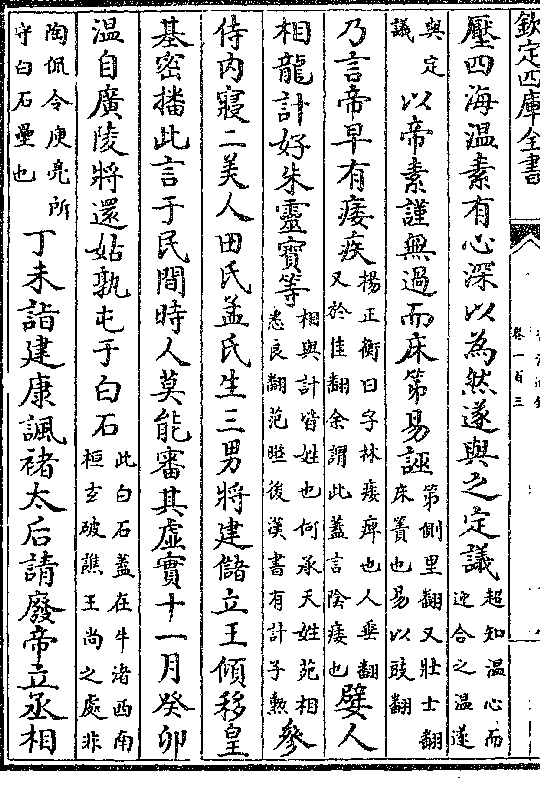 欽定四庫全書
卷一百三
壓四海温素有心深以為然遂與之定議超知温心而迎合之温遂
與定議以帝素謹無過而床笫易誣第側里翻又壯士翻床簀也易以豉翻
乃言帝早有痿疾楊正衡曰字林痿痺也人垂翻又於佳翻余謂此蓋言陰痿也嬖人
相龍計好朱靈寶等相與計皆姓也何承天姓苑相悉良翻范曄後漢書有計子勲參
侍内寢二美人田氏孟氏生三男將建儲立王傾移皇
基密播此言于民間時人莫能審其虛實十一月癸卯
温自廣陵將還姑孰屯于白石此白石蓋在牛渚西南桓玄破譙王尚之處非
陶侃令庾亮所守白石壘也丁未詣建康諷禇太后請廢帝立丞相